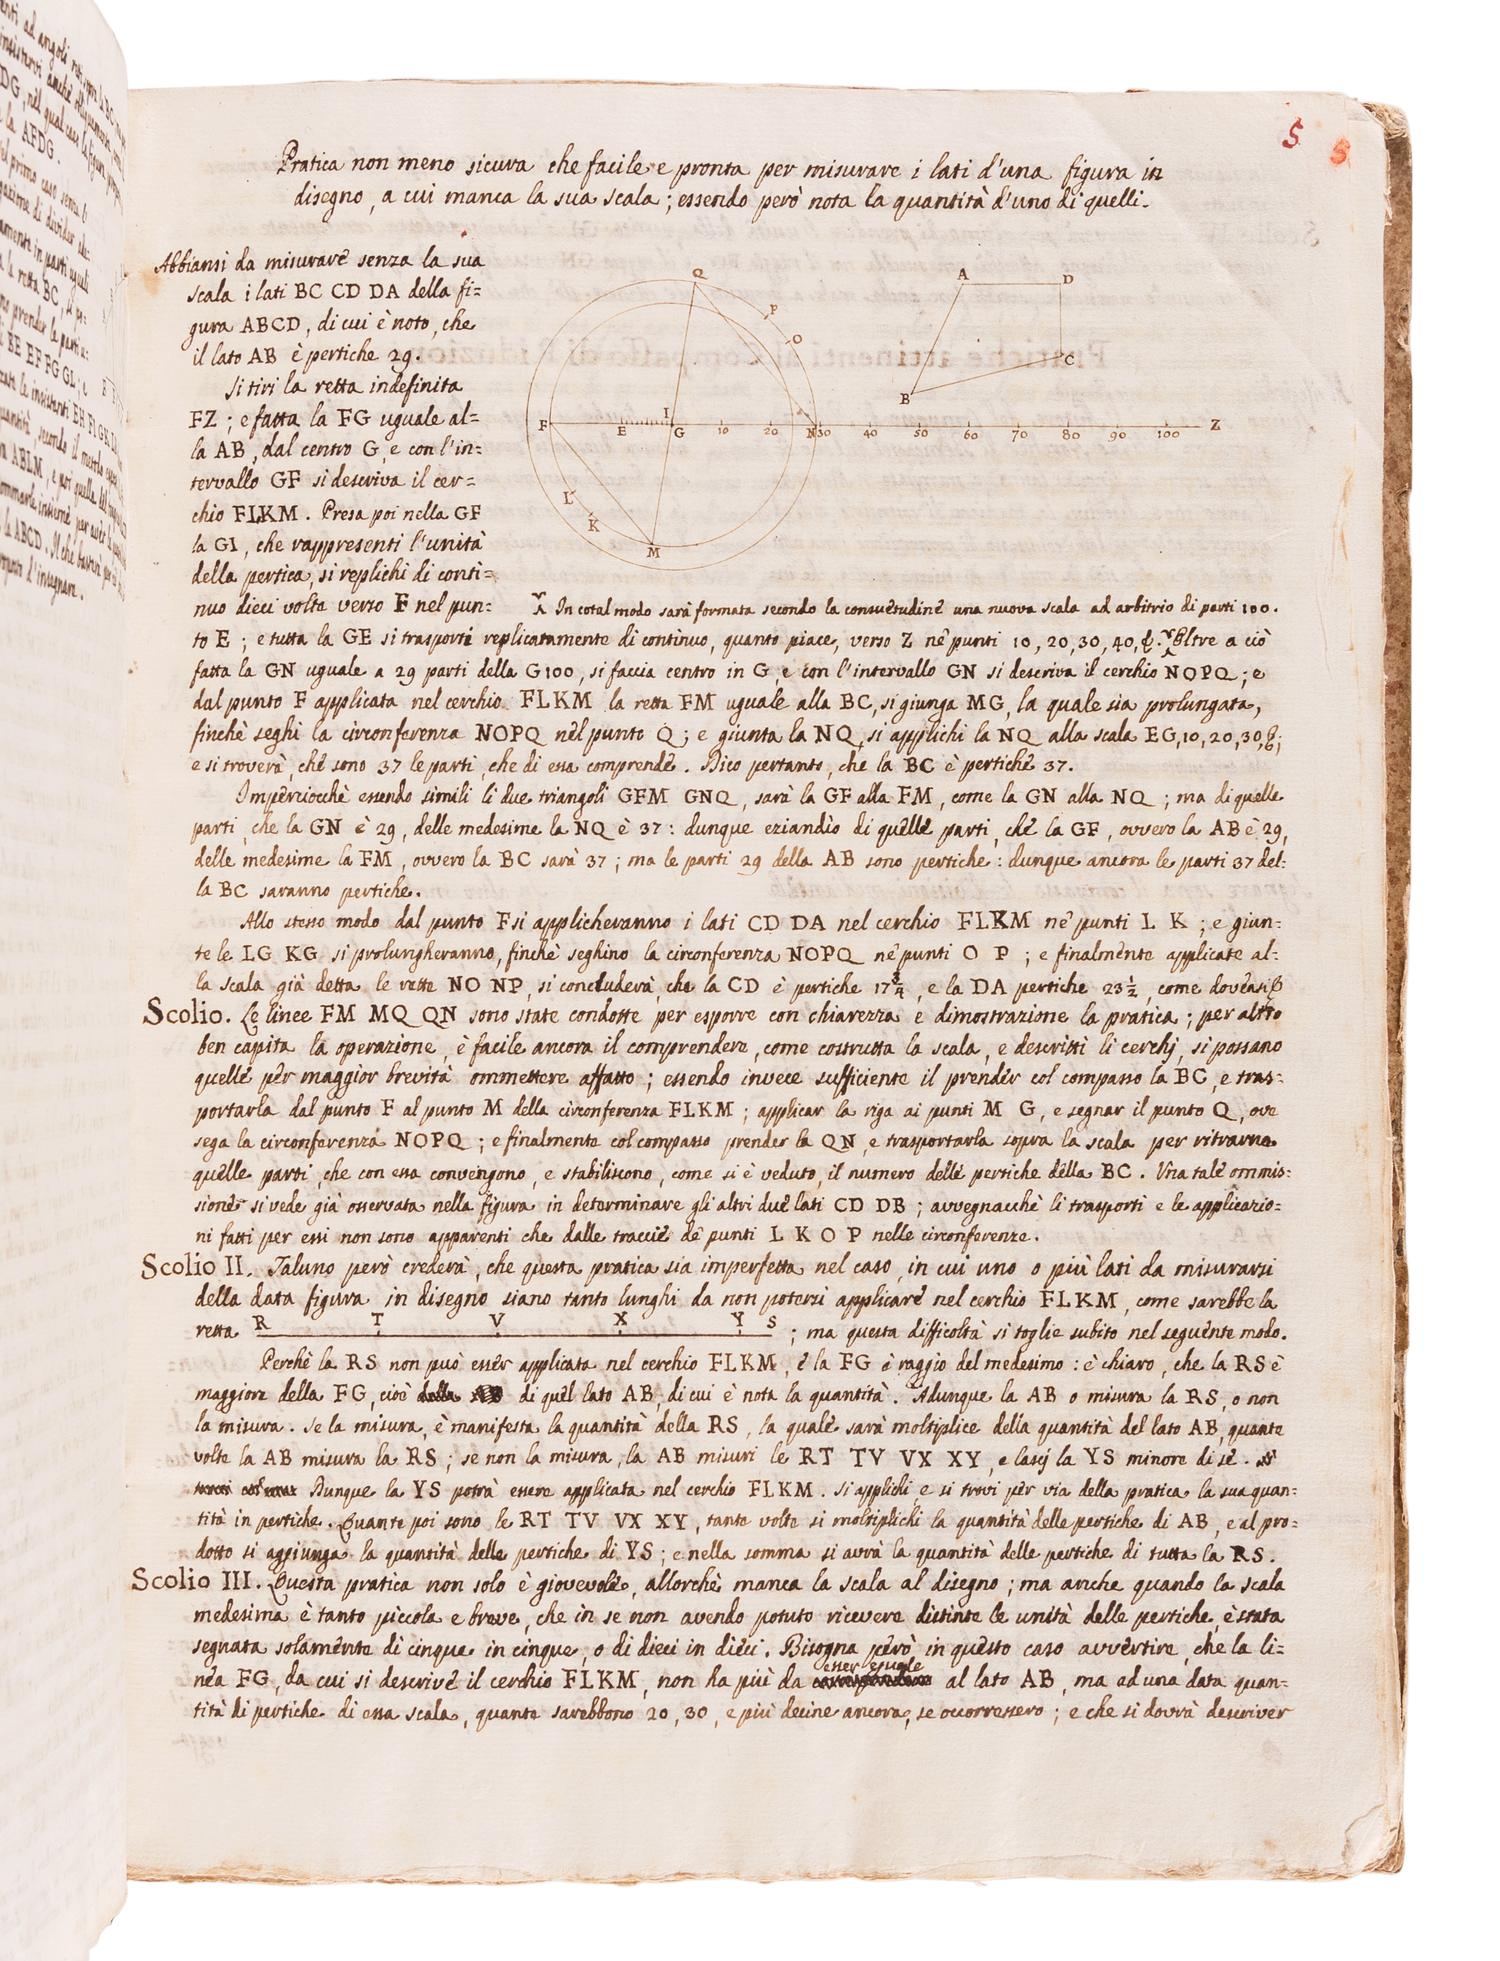 5
5
Pratica non meno sicura che facile e pronta per misurare i lati d'una figura in
disegno, a cui manca la sua scala; essendo però nota la quantità d'uno di quelli.
Abbiansi da misurare senza la sua
scala i lati BC CD DA della fi=
gura ABCD, di cui è noto, che
il lato AB è pertiche 29.
Si tiri la retta indefinita
FZ; e fatta la FG uguale al=
la AB, dal centro G, e con l'in=
tervallo GF si descriva il cer=
chio FLKM. Presa poi nella GF
la GI, che rappresenti l'unità
della pertica, si replichi di conti=
nuo dieci volte verso F nel pun=
Q
P
O
F
E
I
G
10
20
N 30
40
50
60
70
80
90
100
Z
L
K
M
A
D
C
B
In cotal modo sarà formata secondo la consuetudine una nuova scala ad arbitrio di parti 100.
to E; e tutta la GE si trasporti replicatamente di continuo, quanto piace, verso Z ne' punti 10, 20, 30, 40, &. Oltre a ciò
fatta la GN uguale a 29 parti della G100, si faccia centro in G, e con l'intervallo GN si descriva il cerchio NOPQ; e
dal punto F applicata nel cerchio FLKM la retta FM uguale alla BC, si giunga MG, la quale sia prolungata,
finchè seghi la circonferenza NOPQ nel punto Q; e giunta la NQ, si applichi la NQ alla scala EG, 10, 20, 30, &;
e si troverà, che sono 37 le parti, che di essa comprende. Dico pertanto, che la BC è pertiche 37.
Imperciocchè essendo simili li due triangoli GFM GNQ, sarà la GF alla FM, come la GN alla NQ; ma di quelle
parti, che la GN è 29, delle medesime la NQ è 37: dunque eziandìo di quelle parti, che la GF, ovvero la AB è 29,
delle medesime la FM, ovvero la BC sarà 37; ma le parti 29 della AB sono pertiche: dunque ancora le parti 37 del=
la BC saranno pertiche.
Allo stesso modo dal punto F si applicheranno i lati CD DA nel cerchio FLKM ne' punti L K; e giun=
te le LG KG si prolungheranno, finchè seghino la circonferenza NOPQ ne' punti O P; e finalmente applicate al=
la scala già detta le rette NO NP, si concluderà, che la CD è pertiche 17 3/4, e la DA pertiche 23 1/2, come doveasi &
Scolio. Le linee FM MQ QN sono state condotte per esporre con chiarezza e dimostrazione la pratica; per altro
ben capita la operazione, è facile ancora il comprendere, come costrutta la scala, e descritti li cerchj, si possano
quelle per maggior brevità ommettere affatto; essendo invece sufficiente il prender col compasso la BC, e tras=
portarla dal punto F al punto M della circonferenza FLKM; applicar la riga ai punti M G, e segnar il punto Q, ove
sega la circonferenza NOPQ; e finalmente col compasso prender la QN, e trasportarla sopra la scala per ritrarne
quelle parti, che con essa convengono, e stabiliscono, come si è veduto, il numero delle pertiche della BC. Una tale ommis=
sione si vede già osservata nella figura in determinare gli altri due lati CD DB; avvegnacchè li trasporti e le applicazio=
ni fatti per essi non sono apparenti che dalle traccie de' punti L K O P nelle circonferenze.
Scolio II. Taluno però crederà, che questa pratica sia imperfetta nel caso, in cui uno o più lati da misurarsi
della data figura in disegno siano tanto lunghi da non potersi applicare nel cerchio FLKM, come sarebbe la
retta R T V X Y S; ma questa difficoltà si toglie subito nel seguente modo.
Perchè la RS non può esser applicata nel cerchio FLKM, e la FG è raggio del medesimo: è chiaro, che la RS è
maggiore della FG, cioè di quel lato AB, di cui è nota la quantità. Adunque la AB o misura la RS, o non
la misura. Se la misura, è manifesta la quantità della RS, la quale sarà moltiplice della quantità del lato AB, quante
volte la AB misura la RS; se non la misura, la AB misuri le RT TV VX XY, e lascj la YS minore di sè.
Dunque la YS potrà essere applicata nel cerchio FLKM. Si applichi, e si trovi per via della pratica la sua quan=
tità in pertiche. Quante poi sono le RT TV VX XY, tante volte si moltiplichi la quantità delle pertiche di AB, e al pro=
dotto si aggiunga la quantità delle pertiche di YS; e nella somma si avrà la quantità delle pertiche di tutta la RS.
Scolio III. Questa pratica non solo è giovevole, allorchè manca la scala al disegno; ma anche quando la scala
medesima è tanto piccola e breve, che in se non avendo potuto ricevere distinte le unità delle pertiche, è stata
segnata solamente di cinque in cinque, o di dieci in dieci. Bisogna però in questo caso avvertire, che la li=
nea FG, da cui si descrive il cerchio FLKM, non ha più da esser eguale al lato AB, ma ad una data quan=
tità di pertiche di essa scala, quante sarebbono 20, 30, e più decine ancora, se occorressero; e che si dovrà descriver